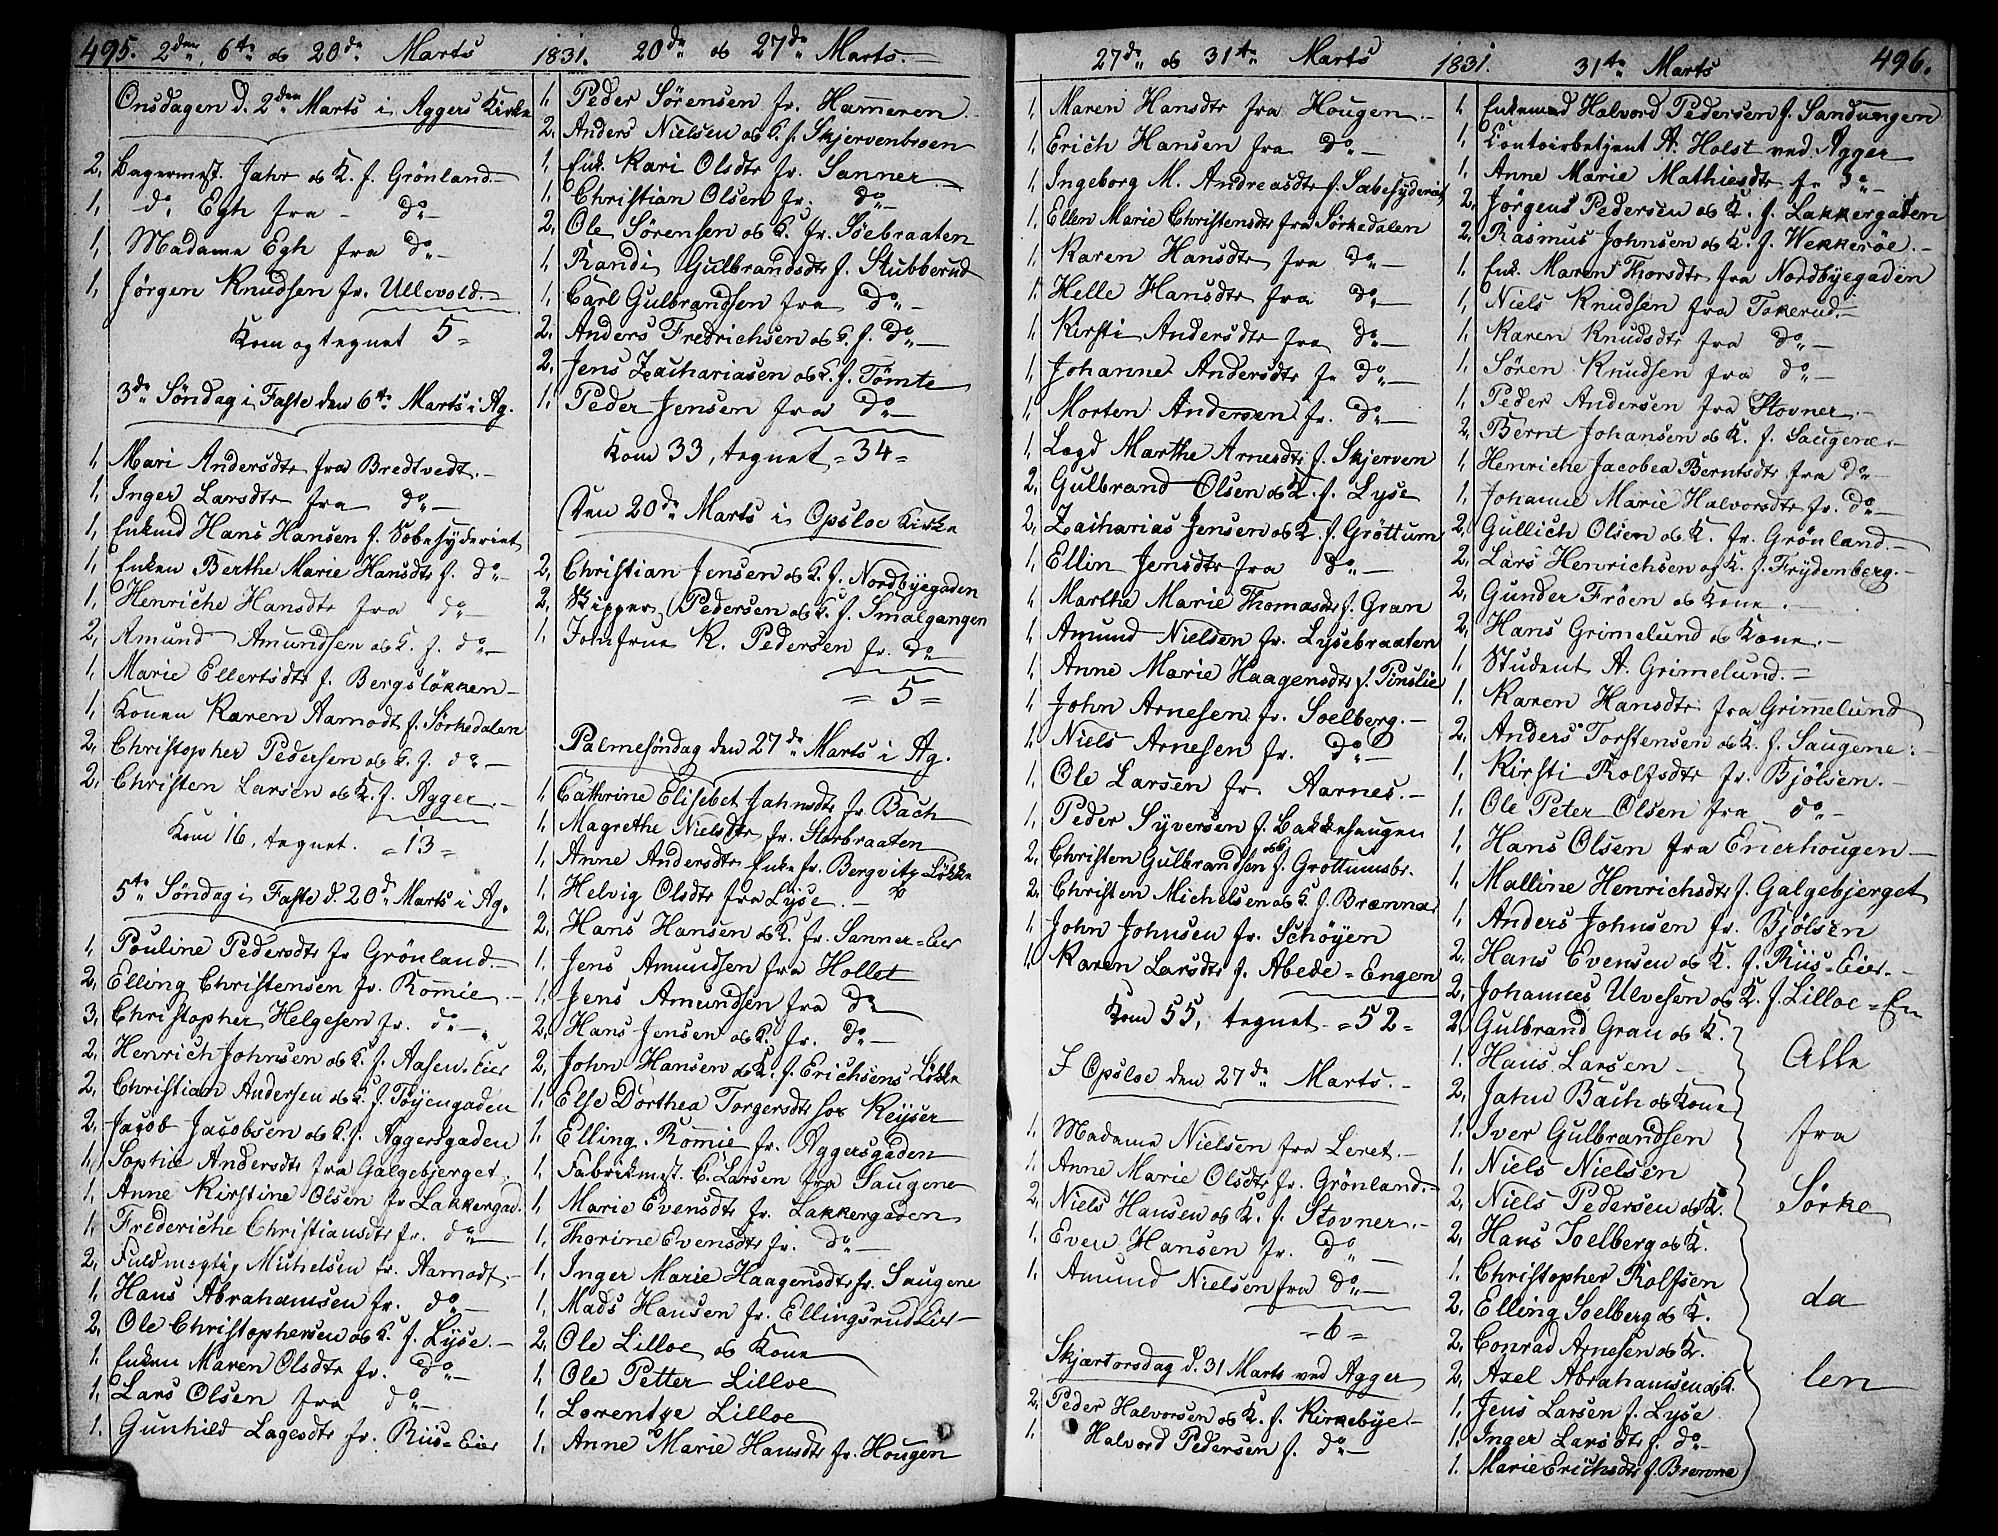 495. 2den, 6te og 20de Marts 1831. 20de og 27de Marts.
Onsdagen d. 2den Marts i Aggers Kirke
2, Bagermest. Jahr og K. f. Grönland.
1, do Egh fra do
1, Madame Egh fra do
1, Jörgen Knudsen fr. Ullevold.
Kom og tegnet 5
3de Söndag i Faste den 6te Marts i Ag.
1, Mari Andersdtr fra Bredtvedt.
1, Inger Larsdtr fra do
1, Enkemd Hans Hansen f. Sæbesyderiet
1, Enken Berthe Marie Hansdtr f. do
1, Henriche Hansdtr fra do
2, Amund Amundsen og K. f. do
1, Marie Ellertsdtr f. Bergslökken
1, Konen Karen Aamodt f. Sörkedalen
2, Christopher Pedersen og K. f. do
2, Christen Larsen og K. f. Agger.
Kom 16, tegnet. =13=
5te Söndag i Faste d. 20de Marts i Ag.
1, Pouline Pedersdtr fr Grönland.
2, Elling Christensen fr. Romie
3, Christopher Helgesen fr. do
2, Henrich Johnsen og K. f. Aasen-Eier
2, Christian Andersen og K. f. Töyengaden
2, Jacob Jacobsen og K. f. Aggersgaden
1, Sophie Andersdtr fra Galgebjerget.
1, Anne Kirstine Olsen fr Lakkergad.
1, Frederiche Christiansdtr fr. do
2, Fuldmægtig Michelsen fr. Aamodt.
1, Hans Abrahamsen fr. do
2, Ole Christophersen og K. f. Lyse.
1, Enken Maren Olsdtr fr. do
1, Lars Olsen fra do
1, Gunhild Lagesdtr fr. Riis=Eier
1, Peder Sörensen fr. Hammeren
2, Anders Nielsen og K. f. Skjervenbroen
1, Enk. Kari Olsdtr fr. Sanner.
1, Christian Olsen fr. do
2, Ole Sörensen og K. fr. Söebraaten
1, Randi Gulbrandsdtr f. Stubberud
1, Carl Gulbrandsen fra do
2, Anders Fredrichsen og K. f. do
2, Jens Zachariasen og K. f. Tömte
1, Peder Jensen fra do
Kom 33, tegnet =34=
Den 20de Marts i Opsloe Kirke
2, Christian Jensen og K. f. Nordbyegaden
2, Skipper Pedersen og K. f. Smalgangen
1, Jomfrue K. Pedersen fr. do
=5=
Palmesöndag den 27de Marts i Ag.
1, Cathrine Elisebet Jahnsdtr fr Bach
1, Magrethe Nielsdtr fr. Storbraaten
1, Anne Andersdtr Enke fr. Bergvitz Lökke
1, Helvig Olsdtr fra Lyse.
2, Hans Hansen og K. fr. Sanner=Eier
1, Jens Amundsen fra Hollet
1, Jens Amundsen fra do
2, Hans Jensen og K. fr. do
2, John Hansen og K. f. Erichsens Lökke
1, Else Dorthea Torgersdtr hos Keyser
1, Elling Romie fr. Aggersgaden
1, Fabrikmest. C. Larsen fra Saugene
1, Marie Evensdtr fr. Lakkergaden
1, Thorine Evensdtr fr. do
1, Inger Marie Haagensdtr fr. Saugene
1, Mads Hansen fr. Ellingsrud Eier
2, Ole Lilloe og Kone
1, Ole Petter Lilloe
1, Lorentze Lilloe
1, Anne Marie Hansdtr fr. Hougen
27de og 31te Marts 1831. 31te Marts 496.
1, Maren Hansdtr fra Hougen.
1, Erich Hansen fra do
1, Ingeborg M. Andreasdtr f. Sæbesyderiet
1, Ellen Marie Christensdtr fra Sörkedalen
1, Karen Hansdtr fra do
1, Helle Hansdtr fra do
1, Kirsti Andersdtr fra do
1, Johanne Andersdtr fr do
1, Morten Andersen fr. do
1, Lægd Marthe Arnesdtr f. Skjerven
2, Gulbrand Olsen og K. f. Lyse
2, Zacharias Jensen og K. f. Gröttum
1, Ellin Jensdtr fra do
1, Marthe Marie Thomasdtr f. Gran
1, Amund Nielsen fr. Lysebraaten
1, Anne Marie Haagensdtr f. Pinslie
1, John Arnesen fr. Soelberg.
1, Niels Arnesen fr. do
1, Ole Larsen fr. Aarnes.
1, Peder Syversen f. Bakkehaugen
2, Christen Gulbrandsen og K f. Grottumsbr.
2, Christen Michelsen og K f. Brænna
1, John Johnsen fr. Schöyen
1, Karen Larsdtr f. Abede=Engen
Kom 55, tegnet =52=
I Opsloe den 27de Marts.
1, Madame Nielsen fra Leret.
1, Anne Marie Olsdtr fr. Grönland.
2, Niels Hansen og K. f. Stovner.
1, Even Hansen fr. do
1, Amund Nielsen fra do
=6=
Skjærtorsdag d. 31 Marts ved Agger
2, Peder Halvorsen og K. f. Kirkebye
1, Halvord Pedersen f. do
1, Enkemad Halvord Pedersen f. Sandungen
1, Contoirbetjent A. Holst ved Agger
1, Anne Marie Mathiesdtr fr do
2, Jörgens Pedersen og K. f. Lakkergaden
2, Rasmus Johnsen og K. f. Wekkeröe.
1, Enk. Maren Thorsdtr fra Nordbyegaden
1, Niels Knudsen fra Tokerud.
1, Karen Knudsdtr fra do
1, Sören Knudsen fra do
1, Peder Andersen fra Stovner.
2, Bernt Johansen og K. f. Saugene.
1, Henriche Jacobea Berntsdtr fra do
1, Johanne Marie Halvorsdtr fr. do
2, Gullich Olsen og K. fr. Grönland.
2, Lars Henrichsen og K. f. Frydenberg.
2, Gunder Fröen og Kone.
2, Hans Grimelund og Kone.
1, Student A. Grimelund.
1, Karen Hansdtr fra Grimmelund
2, Anders Torstensen og K. f. Saugene.
1, Kirsti Rolfsdtr fr. Bjölsen.
1, Ole Peter Olsen fra do
1, Hans Olsen fra Enerhougen
1, Malline Henrichsdtr f. Galgebjerget
1, Anders Johnsen fr. Bjölsen
2, Hans Evensen og K. f. Riis=Eier
2, Johannes Ulvesen og K. f. Lilloe=En
2, Gulbrand Gran og K.
1, Hans Larsen
2, Jahn Bach og Kone
1, Iver Gulbrandsen
1, Niels Nielsen
2, Niels Pedersen og K.
2, Hans Soelberg og K.
1, Christopher Rolfsen
2, Elling Soelberg og K.
2, Conrad Arnesen og K.
2, Axel Abrahamsen og K.
1, Jens Larsen f. Lyse
1, Inger Larsdtr f. do
1, Marie Erichsdtr f. Brænna
Alle
fra
Sörke
da
len